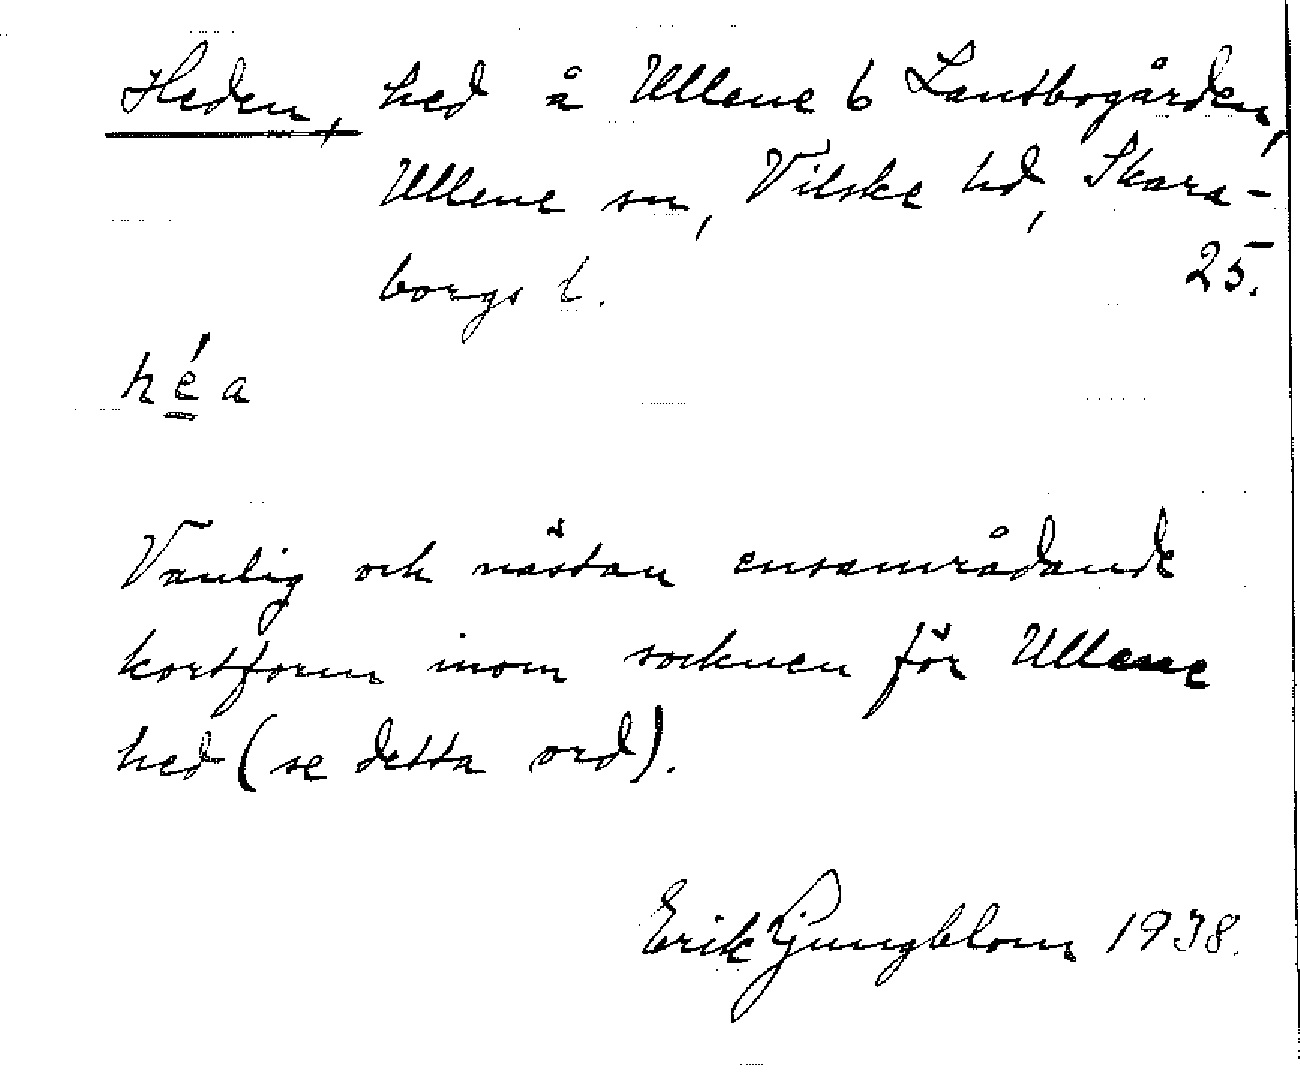 Heden, hed å Ullene 6 Lantbogården,
Ullene sn, Vilske hd, Skara-
borgs l. 25.
héa
Vanlig och nästan ensamrådande
kortform inom socknen för Ullene
hed (se detta ord).
Erik Ljungblom 1938.